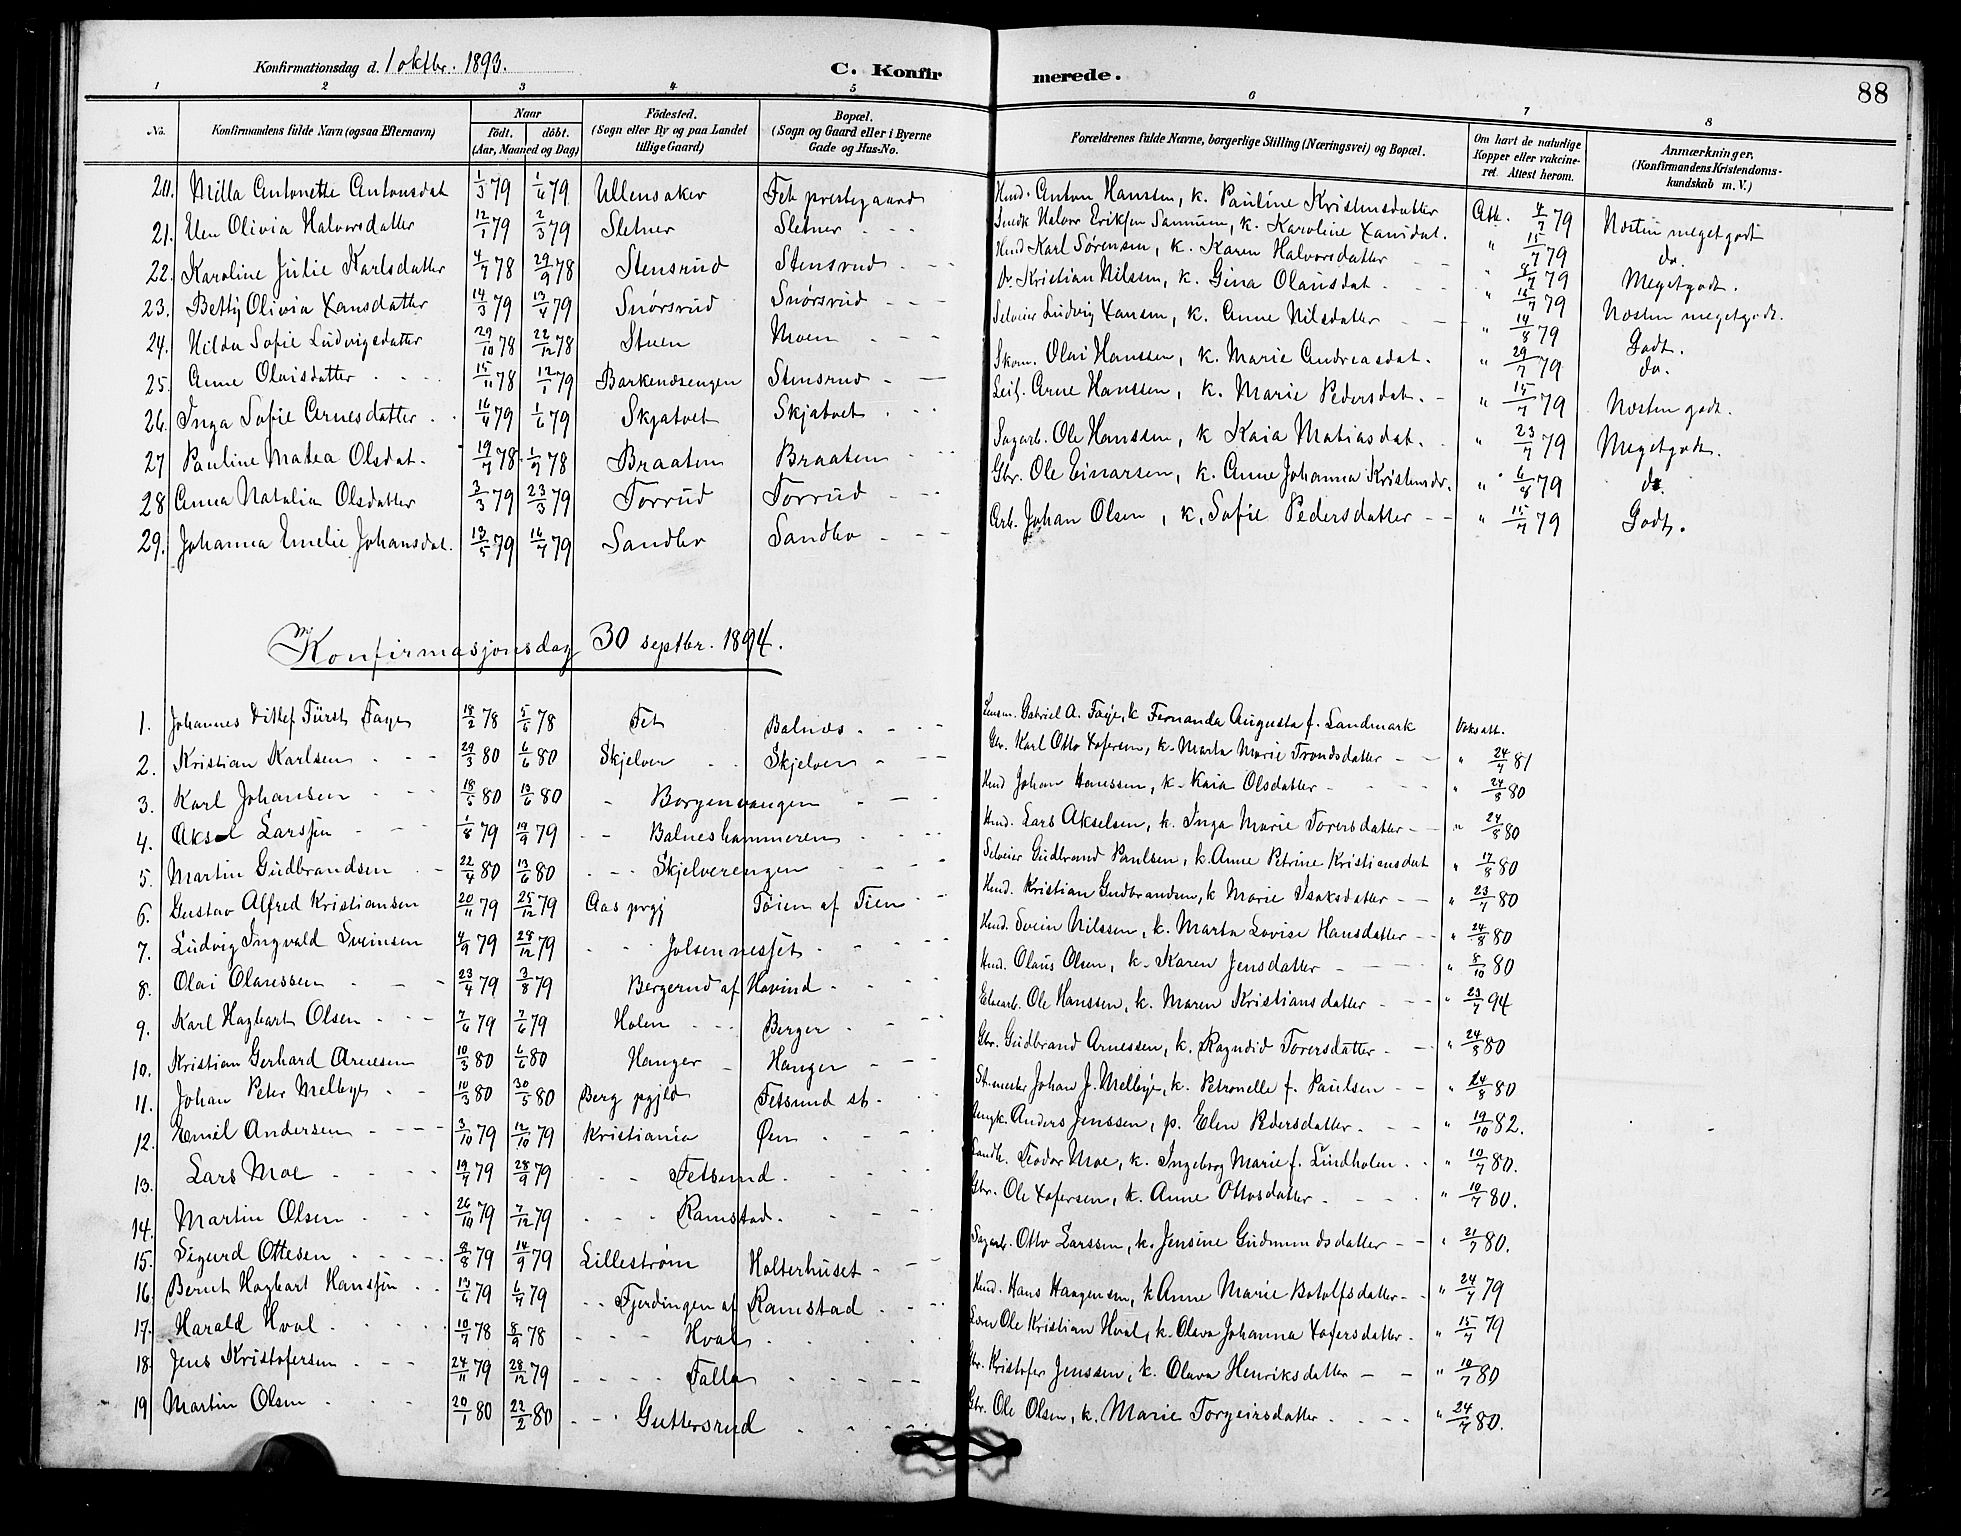 Konfirmationsdag d. 1 oktbr. 1893.
C. Konfirmerede.
88
1 2 3 4 5 6 7 8
No. Konfirmandens fulde Navn (ogsaa Efternavn) Naar födt. döbt. (Aar, Maaned og Dag) Födested. (Sogn eller By og paa Landet tillige Gaard) Bopæl. (Sogn og Gaard eller i Byerne Gade og Hus-No. Forældrenes fulde Navne, borgerlige Stilling (Næringsvei) og Bopæl. Om havt de naturlige Kopper eller vakcineret. Attest herom. Anmærkninger. (Konfirmandens Kristendomskundskab m. V.)
20. Milla Antonette Antonsdat 1/3 79 1/6 79 Ullensaker Fet prestegaard Hmd. Anton Hanssen, k. Pauline Kristensdatter Att. 4/7 79 Nesten megetgodt
21. Olivia Halvorsdatter 12/1 79 2/3 79 Sletner Sletner Smedk Halvor Eriksen Sannum, k. Karoline Xansdat. " 15/7 79 do.
22. Karoline Julie Karlsdatter 4/7 78 29/9 78 Stensrud Stensrud Hmd Karl Sörensen, k. Karen Halvorsdatter " 79 Megetgodt.
23. Betty Olivia Xansdatter 14/3 79 13/4 79 Snörsrud Snörsrud Do. Kristian Nilssen, k. Gina Olausdat. " 79 Nesten megetgodt.
24. Hilda Sofie Ludvigsdatter 29/10 78 22/12 78 Stuen Moen Selveier Ludvig Xansen, k. Anne Nilsdatter " 14/8 79 Godt.
25. Anne Olaisdatter 15/11 78 12/1 79 Barkenæsengen Stensrud Skom. Olai Hanssen, k. Marie Andreasdat. " 29/7 79 do.
26. Inga Sofie Arnesdatter 16/4 79 1/6 79 Skjatvet Skjatvet Leil. Arne Hanssen, k. Marie Pedersdat. " 15/7 79 Nesten godt.
27 Pauline Matea Olsdat. 19/7 78 1/9 78 Braaten Braaten Sagarb. Ole Hanssen, k Kaia Matiasdat. " 23/7 79 Megetgodt.
28 Anna Natalia Olsdatter 3/3 79 23/3 79 Torrud Torrud Gbr. Ole Einarsen, k. Anne Johanna Kristensdr. " 6/8 79 do.
29. Johanna Emelie Johansdat. 13/5 79 16/7 79 Sandbo Sandbo Arb. Johan Olsen, k. Sofie Pedersdatter " 15/7 79 Godt.
Konfirmasjonsdag 30 septbr. 1894.
1. Johannes Ditlef Fürst Faye 18/2 78 5/5 78 Fet Balnes Lensm. Gabriel A. Faye, k Fernanda Augusta f. Landmark Vaks att.
2. Kristian Karlsen 29/3 80 6/6 80 Skjelver Skjelver Gbr. Karl Otto Xofersen, k. Marta Marie Trondsdatter " 24/7 81
3. Karl Johansen 18/5 80 13/6 80 " Borgenvangen Hmd Johan Hanssen, k. Kaia Olsdatter " 24/8 80
4. Aksel Larssen 1/8 79 19/9 79 Balneshammeren Hmd. Lars Akselsen, k. Inga Marie Torersdatter " 24/8 80
5. Martin Gudbrandsen 22/4 80 13/6 80 Skjelverengen Selveier Gudbrand Paulsen, k. Anne Petrine Kristiansdat " 17/8 80
6. Gustav Alfred Kristiansen 20/11 79 25/12 79 Aas prgj Töien af Tien Hmd. Kristian Gudbrandsen, k Marie Isaksdatter " 23/7 80
7. Ludvig Ingvald Sveinsen 4/9 79 28/12 79 Jolsennesjet Hmd. Svein Nilssen, k. Marta Lovise Hansdatter " 24/8 80
8. Olai Olaussen 23/4 79 3/8 79 Bergerud af Hovind Hmd. Olaus Olsen, k. Karen Jensdatter " 8/10 80
9. Karl Hagbart Olsen 7/6 79 7/6 79 Holen Berger Elvearb. Ole Hanssen, k. Maren Kristiansdatter " 23/7 94
10. Kristian Gerhard Arnesen 10/3 80 6/6 80 Hanger Hanger Gbr. Gudbrand Arnessen, k. Ragndid Torersdatter " 24/8 80
11. Johan Peter Melbye 10/3 80 30/5 80 Berg pgjld Fetsund st. St.mester Johan J. Melbye, k. Petronelle f. Paulsen " 24/8 80
12. Emil Andersen 3/10 79 12/10 79 Kristiania Øen Ungk. Anders Jenssen, p. Elen Pedersdatter. " 19/10 82.
13. Lars Moe 19/7 79 28/9 79 Fetsund. Landh. Teodor Moe, k. Ingeborg Marie f. Lindholen " 10/7 80.
14. Martin Olsen 26/10 79 7/12 79 Ramstad. Gbr. Ole Xofersen, k. Anne Ottosdatter " 10/7 80.
15. Sigurd Ottesen 8/8 79 14/9 79 Lillestrøm Holterhuset Sagarb. Otto Larssen, k. Jensine Gudmundsdatter " 21/7 80.
16. Bernt Hagbart Hanssen 13/6 79 6/7 79 Fjerdingen af Ramstad Hmd. Hans Haagensen, k Anne Marie Botolfsdatter " 24/7 79
17. Harald Hval 10/7 78 8/9 78 Hval Ole Kristian Hval, k. Olava Johanna Xofersdatter " 15/7 79
18. Jens Kristofersen 24/11 79 28/12 79 Falla Gbr. Kristofer Jenssen, k. Olava Henriksdatter " 10/7 80
19 Martin Olsen 20/1 80 22/2 80 Guttersrud Gbr. Ole Olsen, k. Marie Torgeirsdatter " 24/7 80.